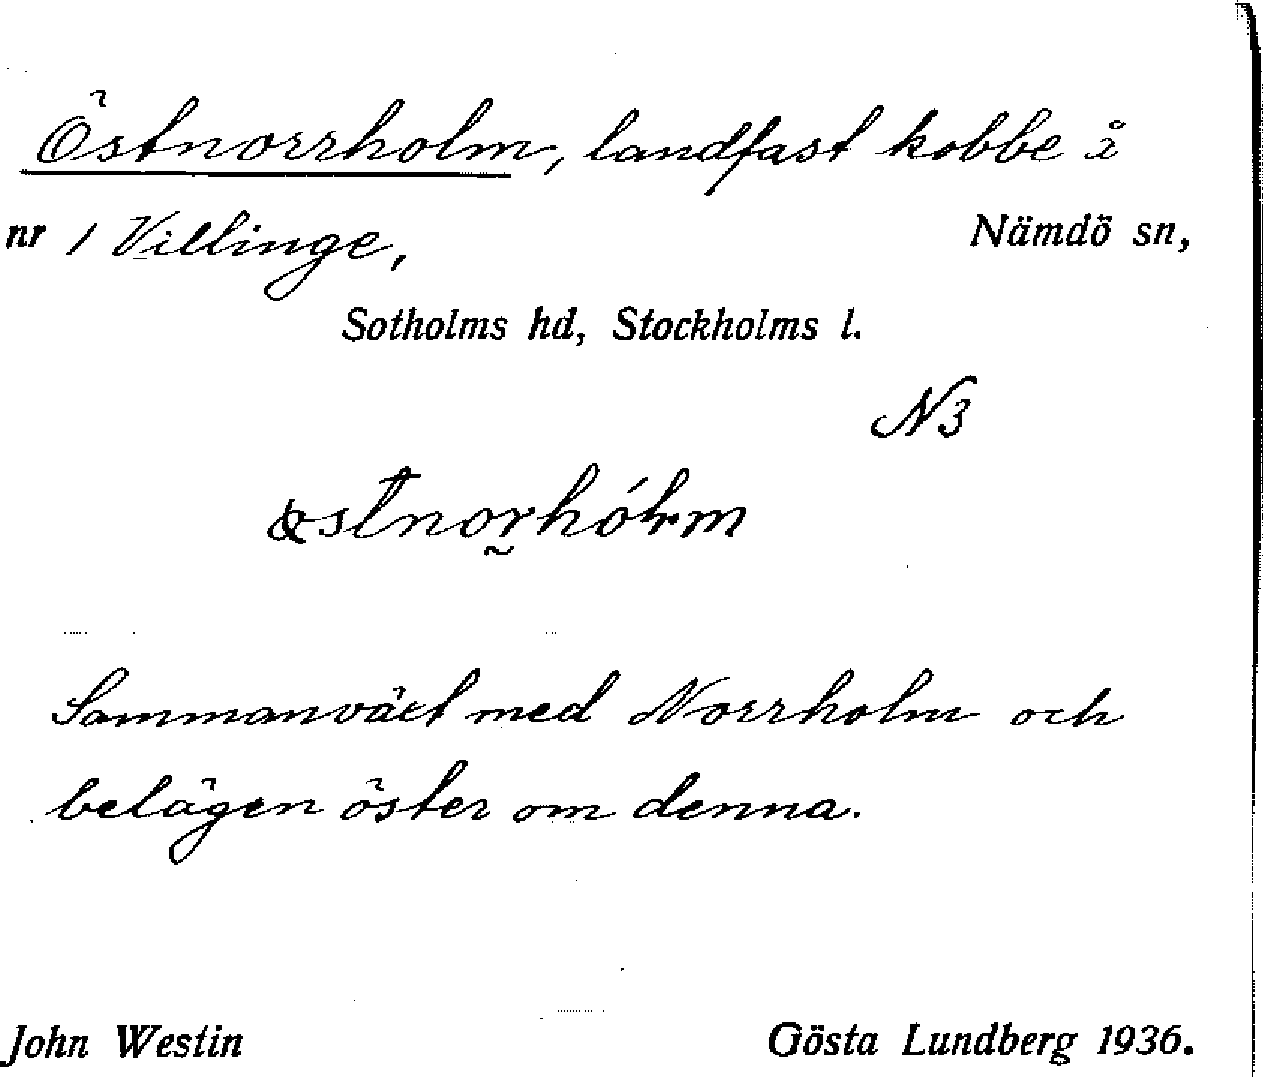 Östnorrholm, landfast kobbe å
nr 1 Villinge, Nämdö sn,
Sotholms hd, Stockholms l.
N3
Sammanväxt med Norrholm och
belägen öster om denna.
John Westin Gösta Lundberg 1936.